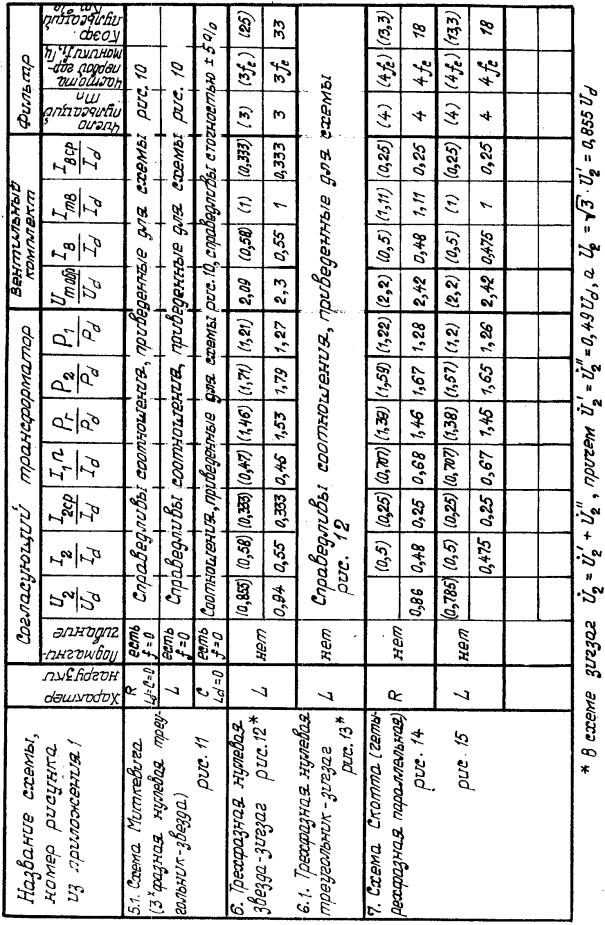 Название схемы,
номер рисунка
из приложения 1
Характер
нагрузки
Подмагни-
чивание
Согласующий трансформатор
U₂/U_d I₂/I_d I₂ср/I_d I₁п/I_d P_г/P_d P₂/P_d P₁/P_d
Вентильный
комплект
U_m обр/U_d I_в/I_d I_mв/I_d I_в ср/I_d
Фильтр
Число
пульсаций
m_п
Частота
первой гар-
моники f₁, Гц
Коэф.
пульсаций
5.1. Схема Миткевича
(3ˣфазная нулевая треу-
гольник-звезда)
рис. 11
R
L_d=C=0
есть
f=0
Справедливы соотношения, приведенные для схемы рис. 10
L
есть
f=0
Справедливы соотношения, приведенные для схемы рис. 10
C
L_d=0
есть
f=0
Соотношения, приведенные для схемы рис. 10, справедливы с точностью ±5%
6. Трехфазная нулевая
звезда-зигзаг рис. 12*
L нет
(0,855) (0,58) (0,333) (0,47) (1,46) (1,71) (1,21) 2,09 (0,58) (1) (0,333) (3) (3f_c) (25)
0,94 0,55 0,333 0,46 1,53 1,79 1,27 2,3 0,55 1 0,333 3 3f_c 33
6.1. Трехфазная нулевая
треугольник-зигзаг
рис. 13*
L нет
Справедливы соотношения, приведенные для схемы
рис. 12
7. Схема Скотта (четы-
рехфазная параллельная)
рис. 14
R нет
(0,5) (0,25) (0,707) (1,39) (1,59) (1,22) (2,2) (0,5) (1,11) (0,25) (4) (4f_c) (13,3)
0,86 0,48 0,25 0,68 1,46 1,67 1,28 2,42 0,48 1,11 0,25 4 4f_c 18
рис. 15
L нет
(0,785) (0,5) (0,25) (0,707) (1,38) (1,57) (1,2) (2,2) (0,5) (1) (0,25) (4) (4f_c) (13,3)
0,475 0,25 0,67 1,45 1,65 1,26 2,42 0,475 1 0,25 4 4f_c 18
* В схеме зигзаг U̇₂ = U̇₂' + U̇₂'', причем U̇₂' = U̇₂'' = 0,49 U_d, а U₂ = √3 · U₂' = 0,855 U_d